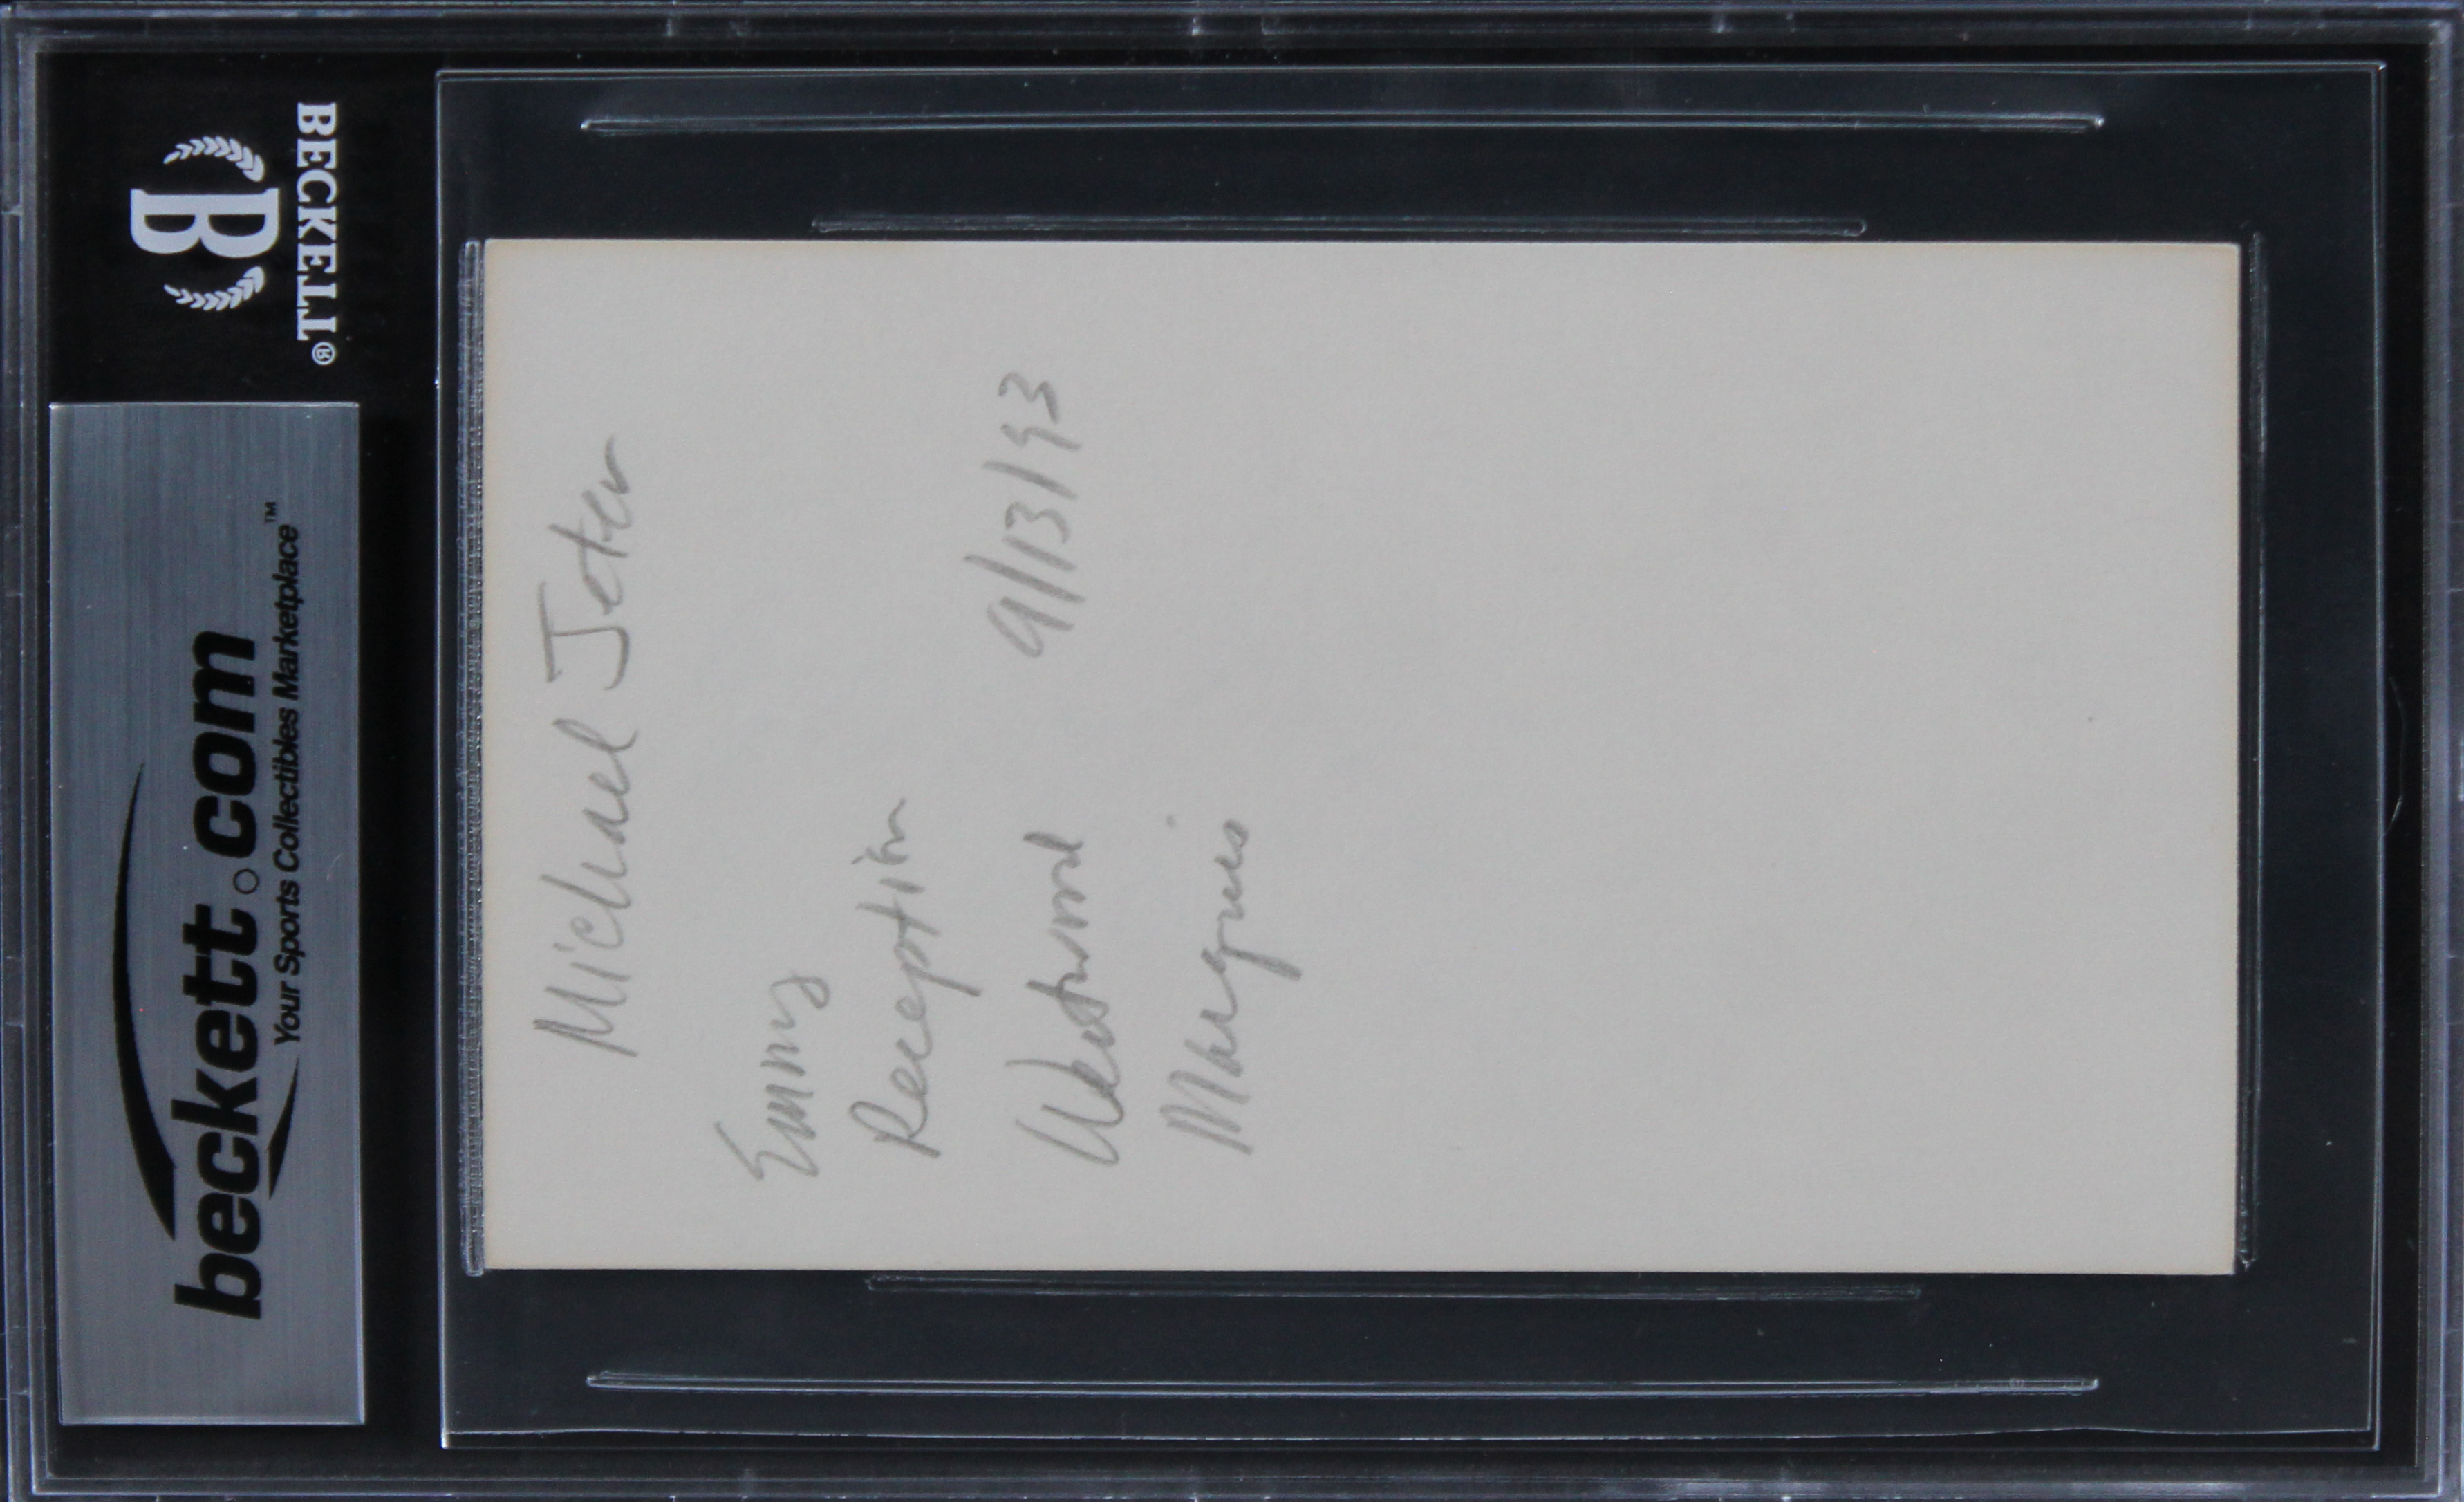 BECKETT®
B
beckett.com™
Your Sports Collectibles Marketplace
Michael Jeter
Emmy
Reception
Westwood 9/13/93
Marquis